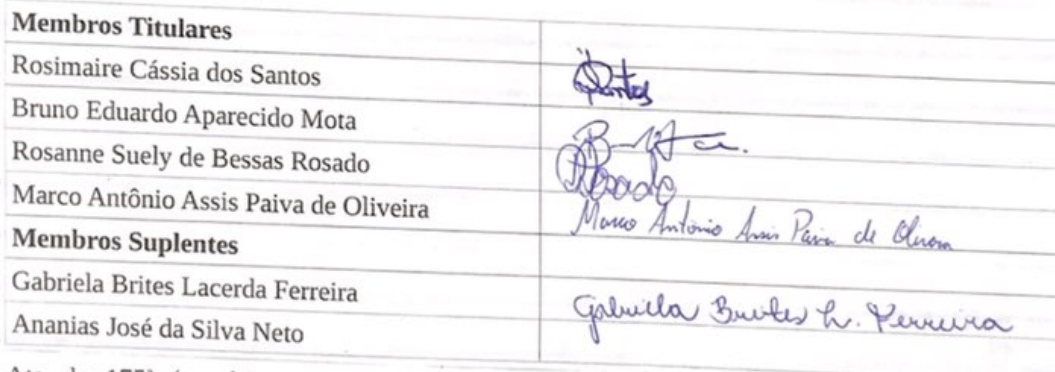 Membros Titulares
Rosimaire Cássia dos Santos
Bruno Eduardo Aparecido Mota
Rosanne Suely de Bessas Rosado
Rosado
Marco Antônio Assis Paiva de Oliveira
Marco Antônio Assis Paiva de Oliveira
Membros Suplentes
Gabriela Brites Lacerda Ferreira
Gabriella Brites L. Ferreira
Ananias José da Silva Neto